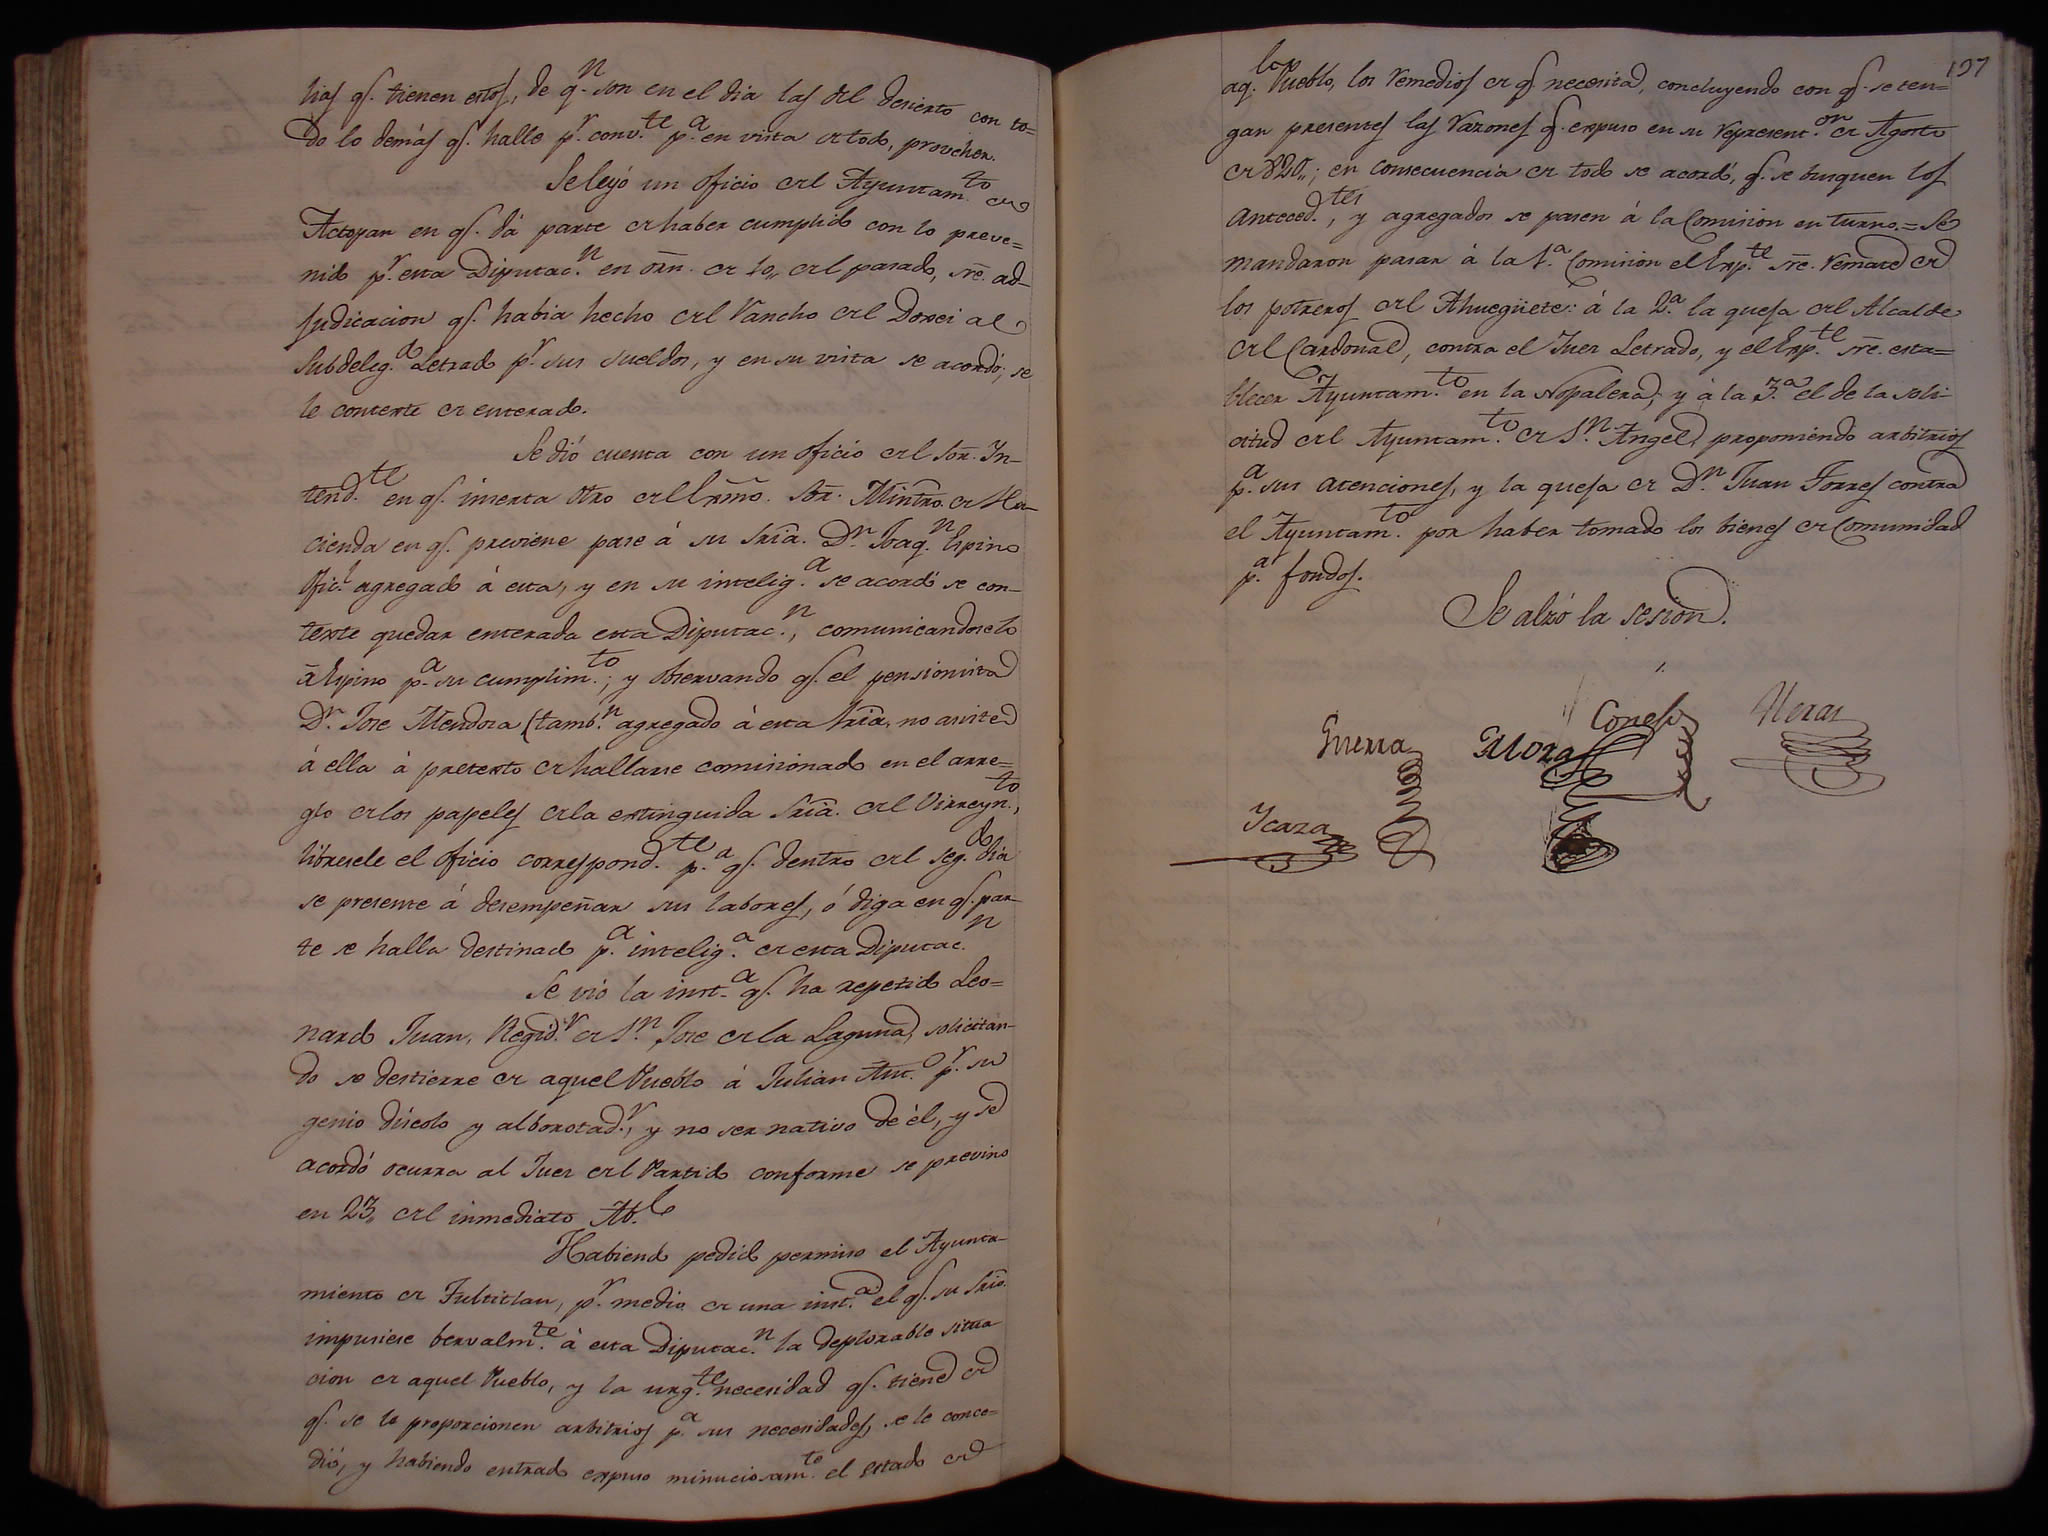 lias q.e tienen estos, de q.n son en el dia las del desierto con to=
do lo demás q.e halle p.r conv.te p.a en vista de todo, proveher.
Se leyó un oficio del Ayuntam.to de
Actopan en q.e dá parte de haber cumplido con lo preve=
nido p.r esta Diputac.n en orn. de 10,, del pasado, sre. ad-
judicacion q.e habia hecho del Rancho del Doxei al
Subdeleg.do Letrado p.r sus sueldos, y en su vista se acordó, se
le conteste de enterado.
Se dió cuenta con un oficio del Sor. In-
tend.te en q.e inserta otro del Exmõ. Sõr. Mintro. de Ha-
cienda en q.e previene pase á su Sria. Dn. Joaq.n Espino
Ofic.l agregado á esta, y en su intelig.a se acordó se con-
texte quedar enterada esta Diputac.n, comunicandoselo
á Espino p.a su cumplim.to; y observando q.e el pensionista
Dn. Jose Mendoza (tamb.n agregado á esta Sria. no asiste
á ella á pretexto de hallarse comisionado en el arre=
glo de los papeles de la extinguida Sria. del Virreyn.to,
libresele el oficio correspond.te p.a q.e dentro del seg.do dia
se presente á desempeñar sus labores, ó diga en q.e par-
te se halla destinado p.a intelig.a de esta Diputac.n
Se vió la inst.a q.e ha repetido Leo=
nardo Juan, Regid.r de S.n Jose de la Laguna, solicitan-
do se destierre de aquel Pueblo á Julian Ant.o p.r su
genio díscolo y alborotad.r, y no ser nativo de él, y se
acordó ocurra al Juez del Partido conforme se previno
en 23,, del inmediato Ab.l
Habiendo pedido permiso el Ayunta-
miento de Tultitlan, p.r medio de una inst.a el q.e su Srio.
impusiese bervalm.te á esta Diputac.n la deplorable situa
cion de aquel Pueblo, y la urg.te necesidad q.e tiene de
q.e se le proporcionen arbitrios p.a sus necesidades, se le conce=
dió, y habiendo entrado expuso minuciosam.te el estado de
197
aq.l Pueblo, los remedios de q.e necesita, concluyendo con q.e se ten=
gan presentes las razones q.e expuso en su represent.on de Agosto
de 820,,; en consecuencia de todo se acordó, q.e se busquen los
anteced.tes, y agregados se pasen á la Comision en turno.= Se
mandaron pasar á la 1.a Comision el Exp.te sre. remate de
los potreros del Ahuegüete: á la 2.a la queja del Alcalde
del Cardonal, contra el Juez Letrado, y el Exp.te sre. esta=
blecer Ayuntam.to en la Nopalera; y á la 3.a el de la soli-
citud del Ayuntam.to de S.n Angel, proponiendo arbitrios
p.a sus atenciones, y la queja de Dn. Juan Torres contra
el Ayuntam.to por haber tomado los bienes de Comunidad
p.a fondos.
Se alzó la sesion.
Guerra
Mora
Cortes
Icaza